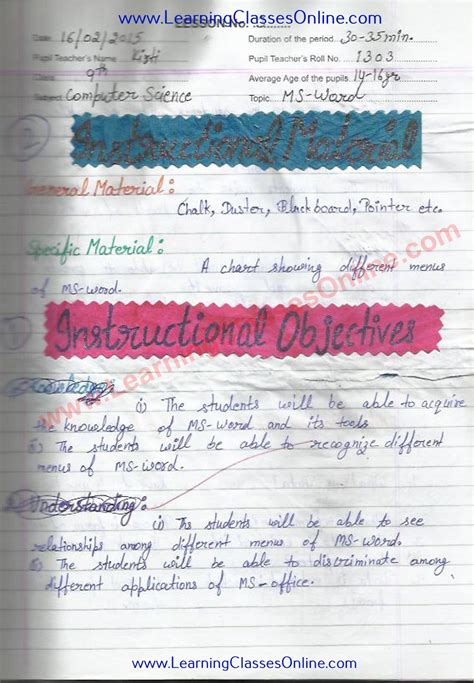 www.LearningClassesOnline.com
LESSON No.
Date 16/02/2015 Duration of the period 30-35min
Pupil Teacher's Name Pupil Teacher's Roll No. 1303
Class 9th Average Age of the pupils 14-16yr
Subject Computer Science Topic MS-Word
2 Instructional Material
General Material:
Chalk, Duster, Blackboard, Pointer etc.
Specific Material:
A chart showing different menus
of MS-word.
1 Instructional Objectives
Knowledge:
i) The students will be able to acquire
the knowledge of MS-Word and its tools
ii) The students will be able to recognize different
menus of MS-word.
Understanding:
i) The students will be able to see
relationships among different menus of MS-word.
ii) The students will be able to discriminate among
different applications of MS-office.
www.LearningClassesOnline.com
www.LearningClassesOnline.com